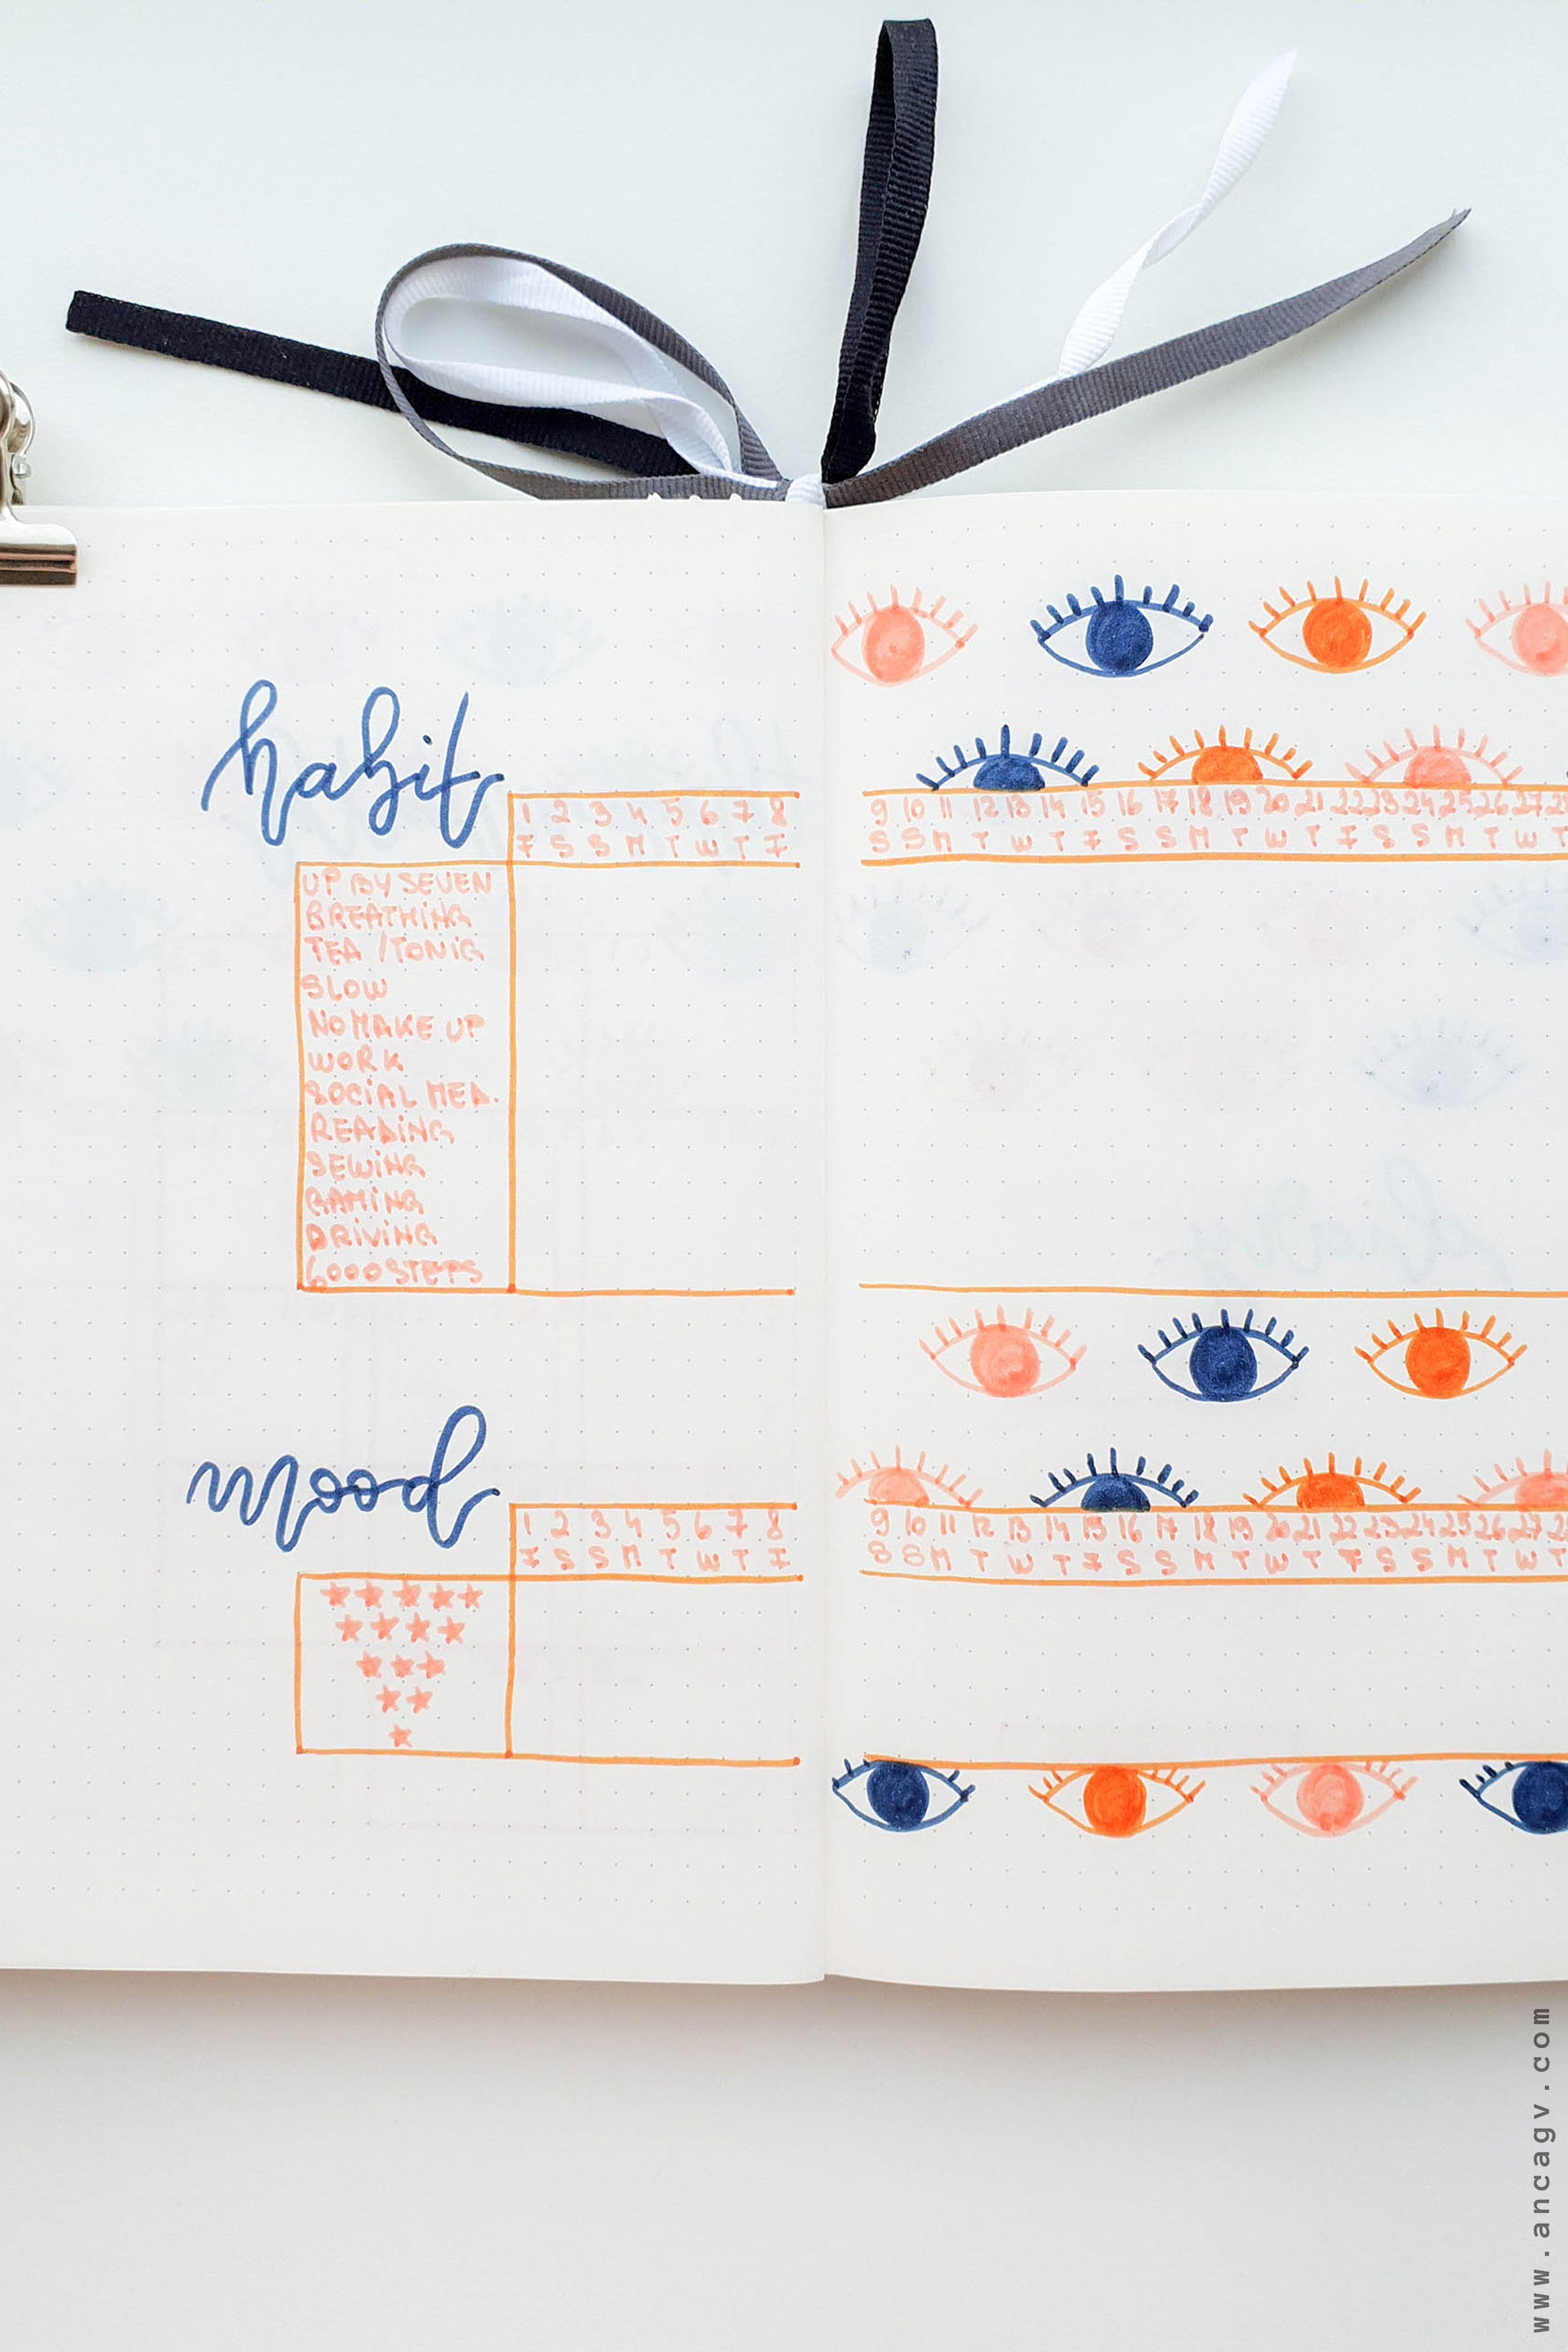 habit
1 2 3 4 5 6 7 8 9 10 11 12 13 14 15 16 17 18 19 20 21 22 23 24 25 26 27 28
F S S M T W T F S S M T W T F S S M T W T F S S M T W T
UP BY SEVEN
BREATHING
TEA / TONIC
SLOW
NO MAKE UP
WORK
SOCIAL MED.
READING
SEWING
GAMING
DRIVING
6000 STEPS
mood
1 2 3 4 5 6 7 8 9 10 11 12 13 14 15 16 17 18 19 20 21 22 23 24 25 26 27 28
F S S M T W T F S S M T W T F S S M T W T F S S M T W T
www.ancagv.com